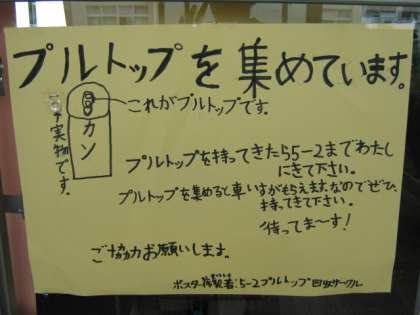 プルトップを集めています。
これがプルトップです。
カン
↑実物です。
プルトップを持ってきたら5-2までわたし
にきて下さい。
プルトップを集めると車いすがもらえます。なのでぜひ、
持ってきて下さい。
待ってまーす!
ご協力お願いします。
ポスター掲載者:5-2プルトップ回収サークル